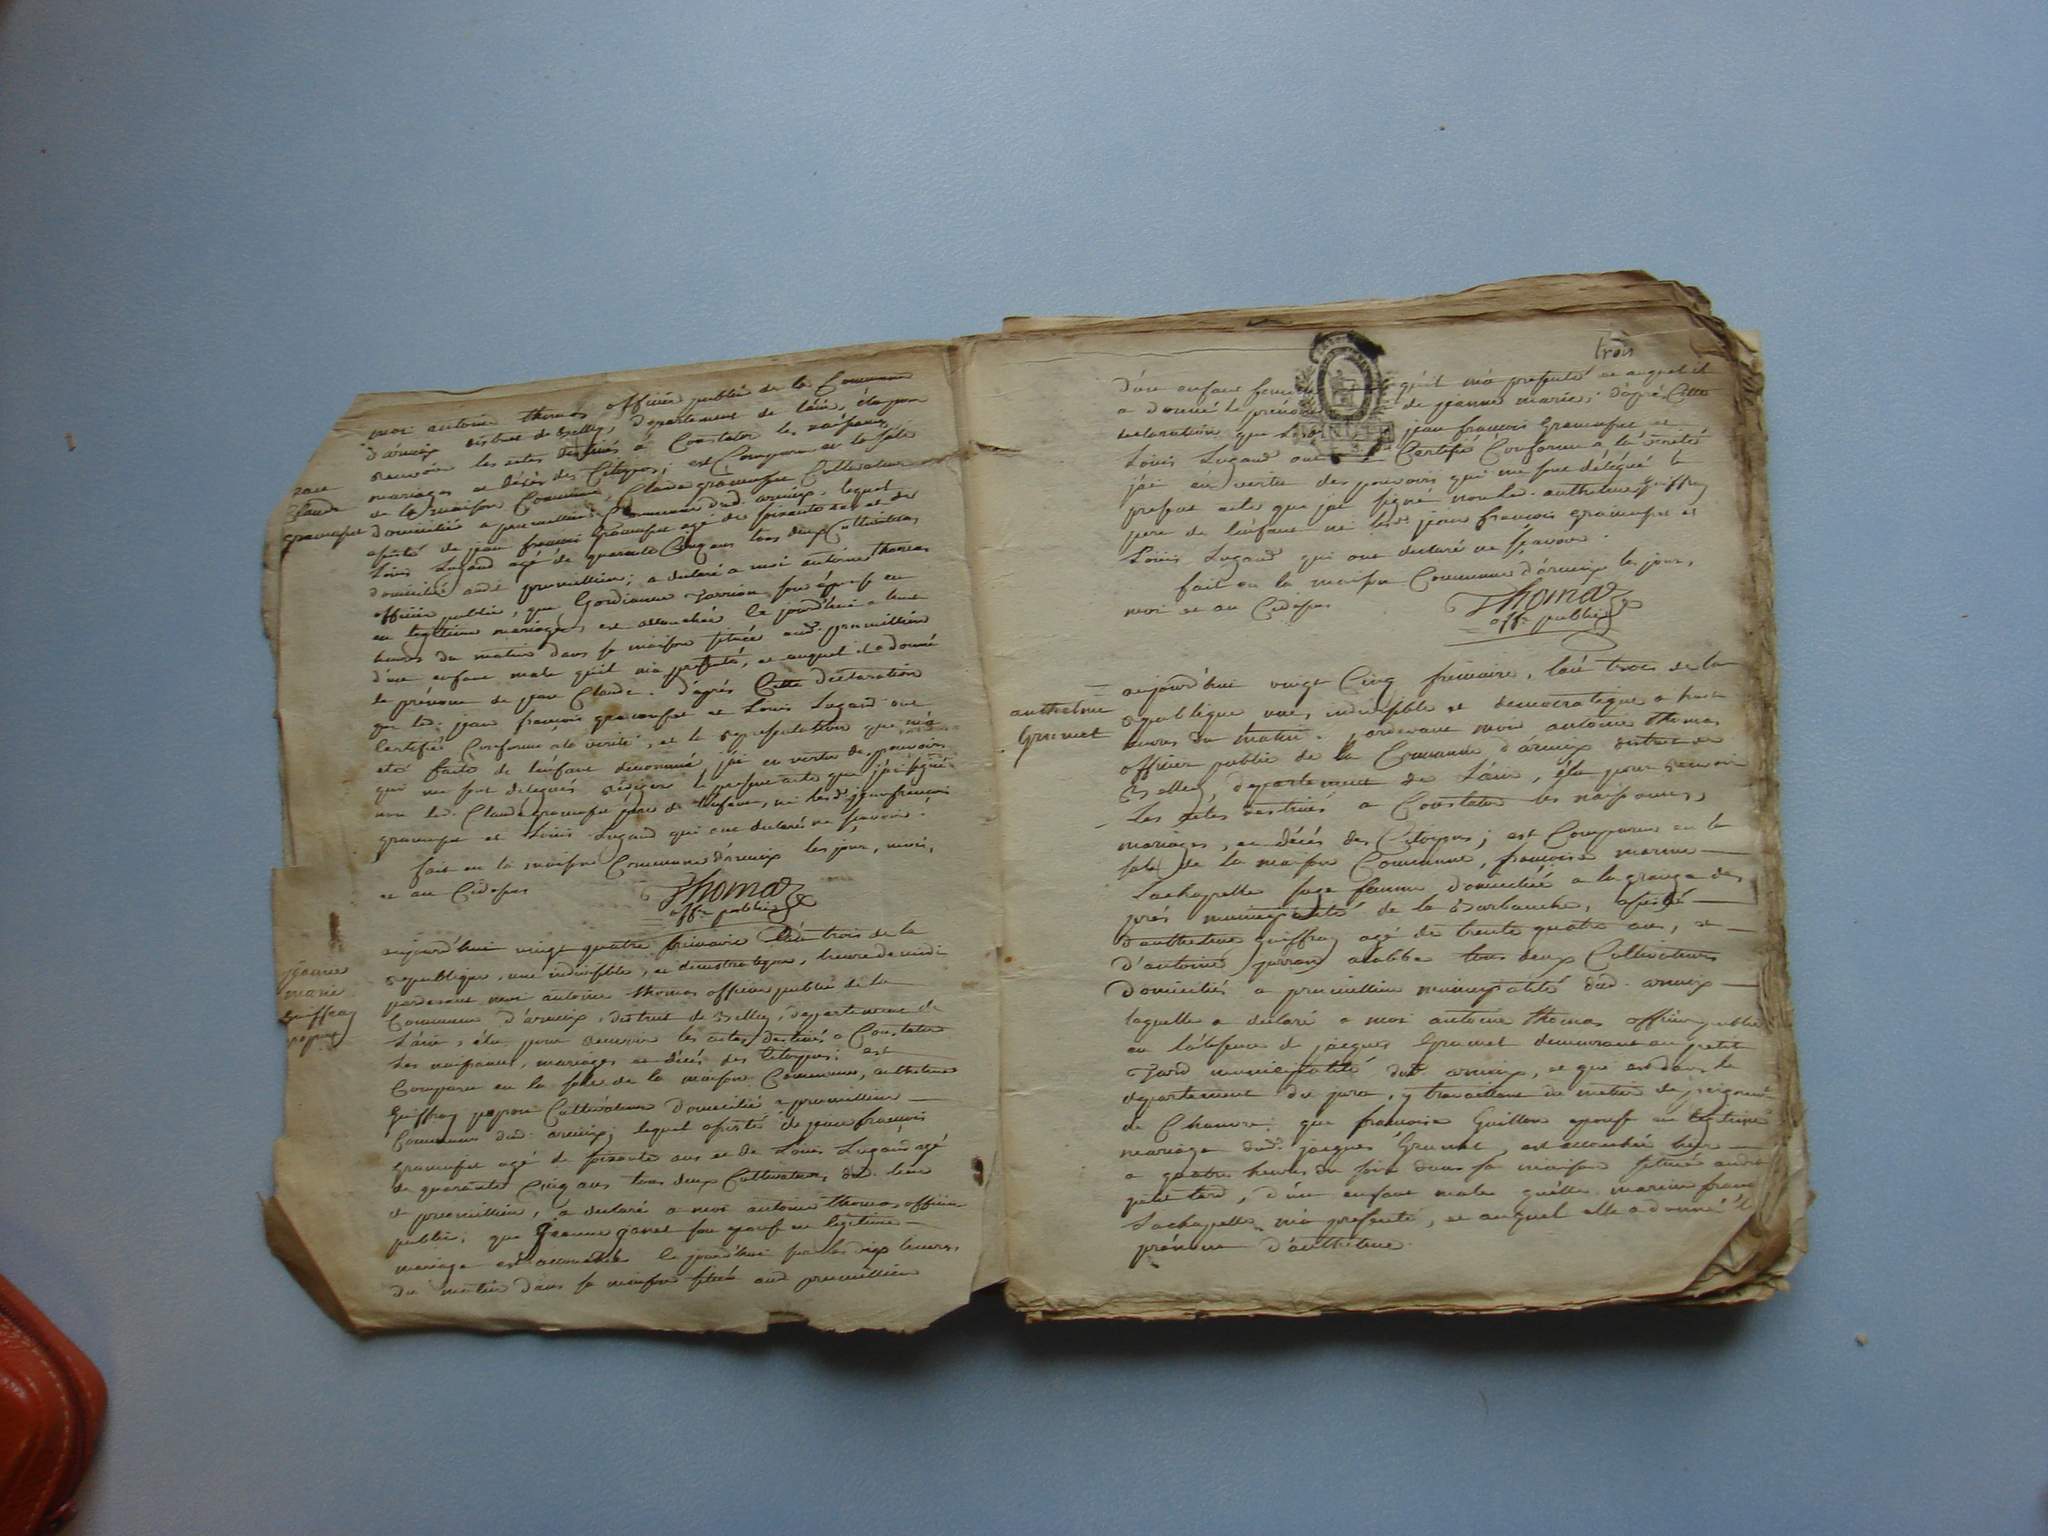 moi antoine thomas officier public de la Commune
d'armix district de Belley, departement de lain, élu pour
recevoir les actes destinés à Constater les naissances,
mariages et décés des Citoyens; est Comparu en la sale
de la maison Commune, Claude gramusset Cultivateur
domicilié a premillieu Commune dud. armix, lequel
assisté de jean françois gramusset agé de soixante ans et de
Louis Lugand agé de quarante Cinq ans tous deux Cultivateurs
domiciliés aud. premillieu; a declaré a moi antoine thomas
officier public, que son épouse en
en legitime mariage, est accouchée le jourd'hui a
heures du matin dans sa maison située aud. premillieu
d'un enfant male qu'il m'a presenté, et auquel il a donné
le prénom de jean Claude. d'aprés Cette declaration
que led. jean françois gramusset et Louis Lugand ont
Certifié Conforme a la verité, et la representation que m'a
eté faite de l'enfant denommé, j'ai en vertu des pouvoirs
qui me sont delegués redigé le present acte que j'ai signé
non led. Claude gramusset pére de l'enfant, ni lesd. jean françois
gramusset et Louis Lugand qui ont declaré ne sçavoir.
fait en la maison Commune d'armix les jour, mois,
et an Cidessus
Thomas
offr. public
jean
Claude
gramusset
aujourd'hui vingt quatre frimaire l'an trois de la
republique, une indivisible, et democratique, heure de midi
pardevant moi antoine thomas officier public de la
Commune d'armix, district de Belley, departement de
L'ain, élu pour recevoir les actes destinés a Constater
les naissances, mariages et décés des Citoyens; est
Comparu en la sale de la maison Commune, anthelme
guiffray popon Cultivateur domicilié a premillieu
Commune dud. armix, lequel assisté de jean françois
gramusset agé de soixante ans et de Louis Lugand agé
de quarante Cinq ans tous deux Cultivateurs, dud. lieu
de premillieu, a declaré a moi antoine thomas officier
public, que jeanne son epouse en legitime
mariage est accouchée le jourd'hui sur les dix heures,
du matin dans sa maison située aud premillieu
jeanne
marie
guiffray
popon
trois
d'un enfant qu'il m'a presenté et auquel il
a donné le prénom de jeanne marie, d'aprés Cette
declaration que jean françois gramusset et
Louis Lugand ont Certifié Conforme a la verité
j'ai en vertu des pouvoirs qui me sont délégué le
present acte que j'ai signé non led. anthelme guiffray
pere de l'enfant ni lesd. jean françois gramusset et
Louis Lugand qui ont declaré ne sçavoir.
fait en la maison Commune d'armix les jour,
moi et an Cidessus
Thomas
offr. public
anthelme
Grumet
aujourd'hui vingt Cinq frimaire, l'an trois de la
republique une, indivisible et democratique a huit
heures du matin. pardevant moi antoine thomas
officier public de la Commune d'armix district de
Belley, departement de L'ain, élu pour recevoir
Les actes destinés a Constater les naissances,
mariages, et décés des Citoyens; est Comparue en la
sale de la maison Commune, françoise marine
Lachapelle sage famme domiciliée a la grange des
prés municipalité de la Burbanche, assisté
d'anthelme guiffray agé de trente quatre ans, et
d'antoine tous deux Cultivateurs
domiciliés a premillieu municipalité dud. armix
laquelle a declaré a moi antoine thomas officier public
en l'absence de jacques Grumet demeurant au petit
municipalité dud. armix, et qui est dans le
departement du jura, y travaillant du métier de peigneur
de Chanvre; que françoise Guillon epouse en legitime
mariage dud. jacques Grumet, est accouchée hier
a quatre heures du soir dans sa maison située aud.
petit, d'un enfant male qu'elle marine
Lachapelle m'a presenté, et auquel elle a donné le
prénom d'anthelme